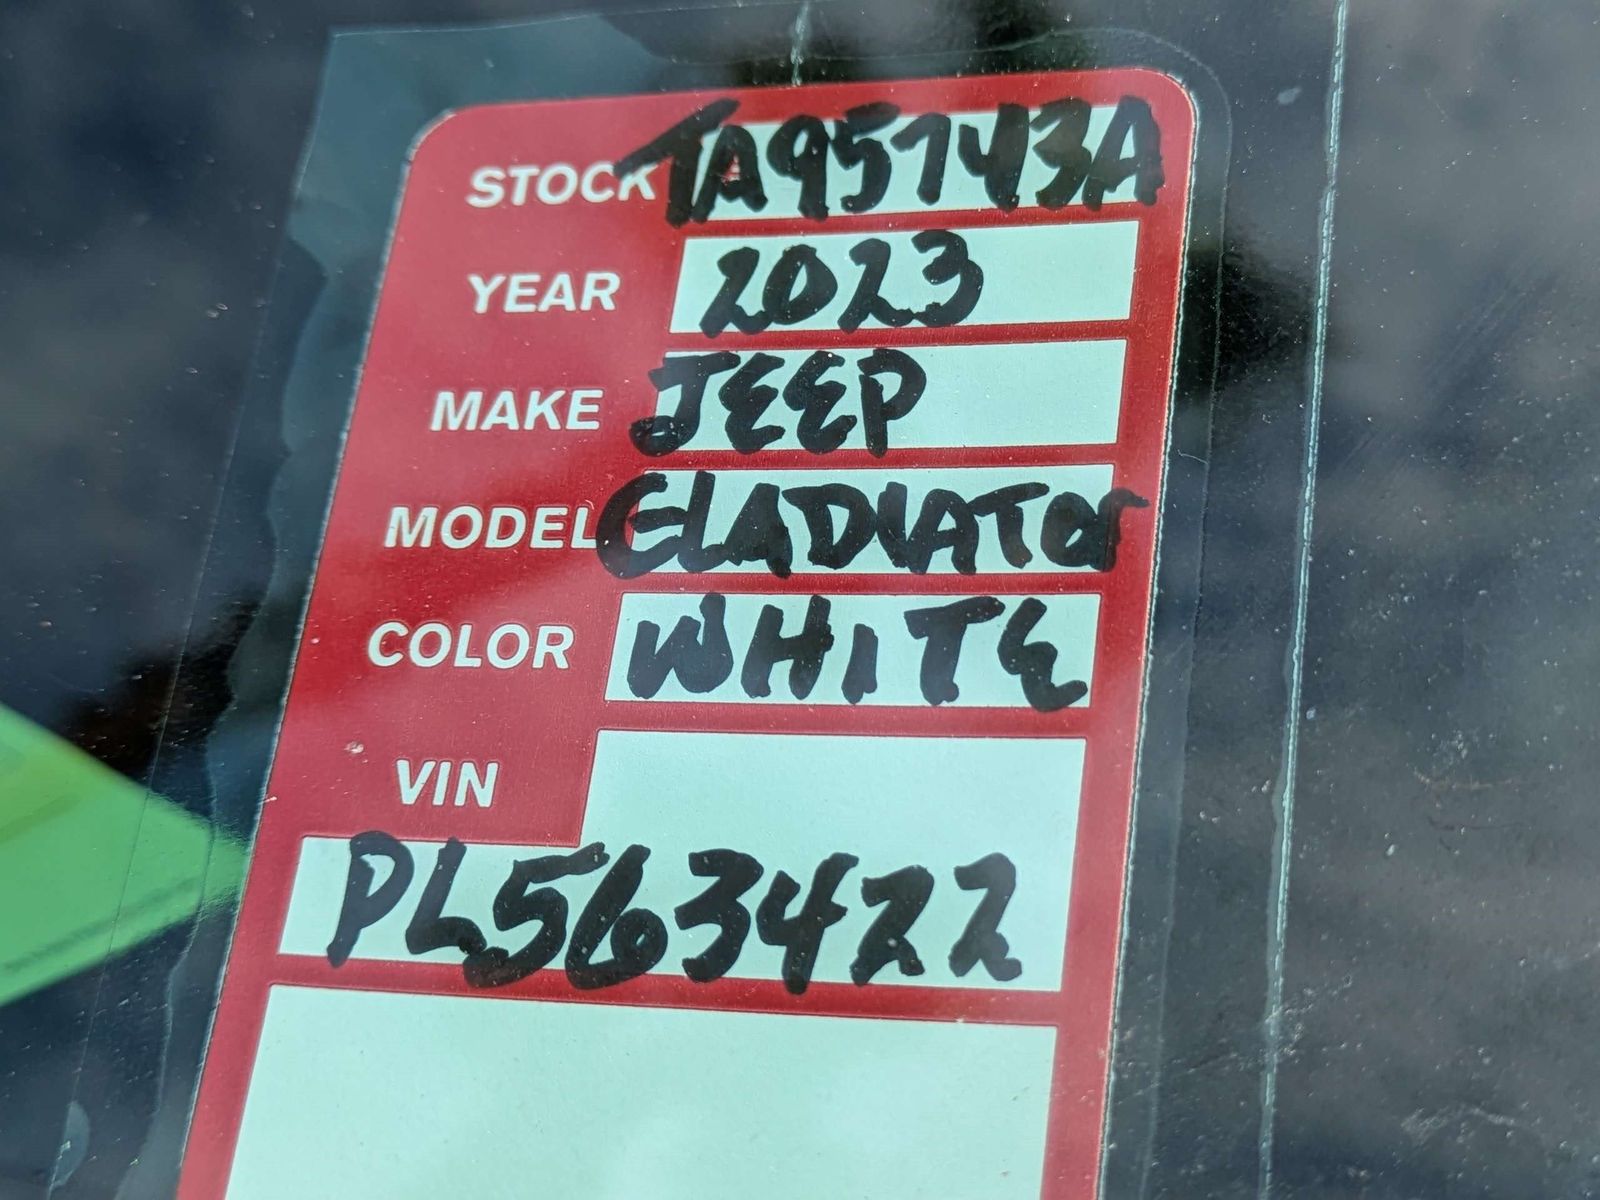 STOCK TA95743A
YEAR 2023
MAKE JEEP
MODEL GLADIATOR
COLOR WHITE
VIN
PL563422